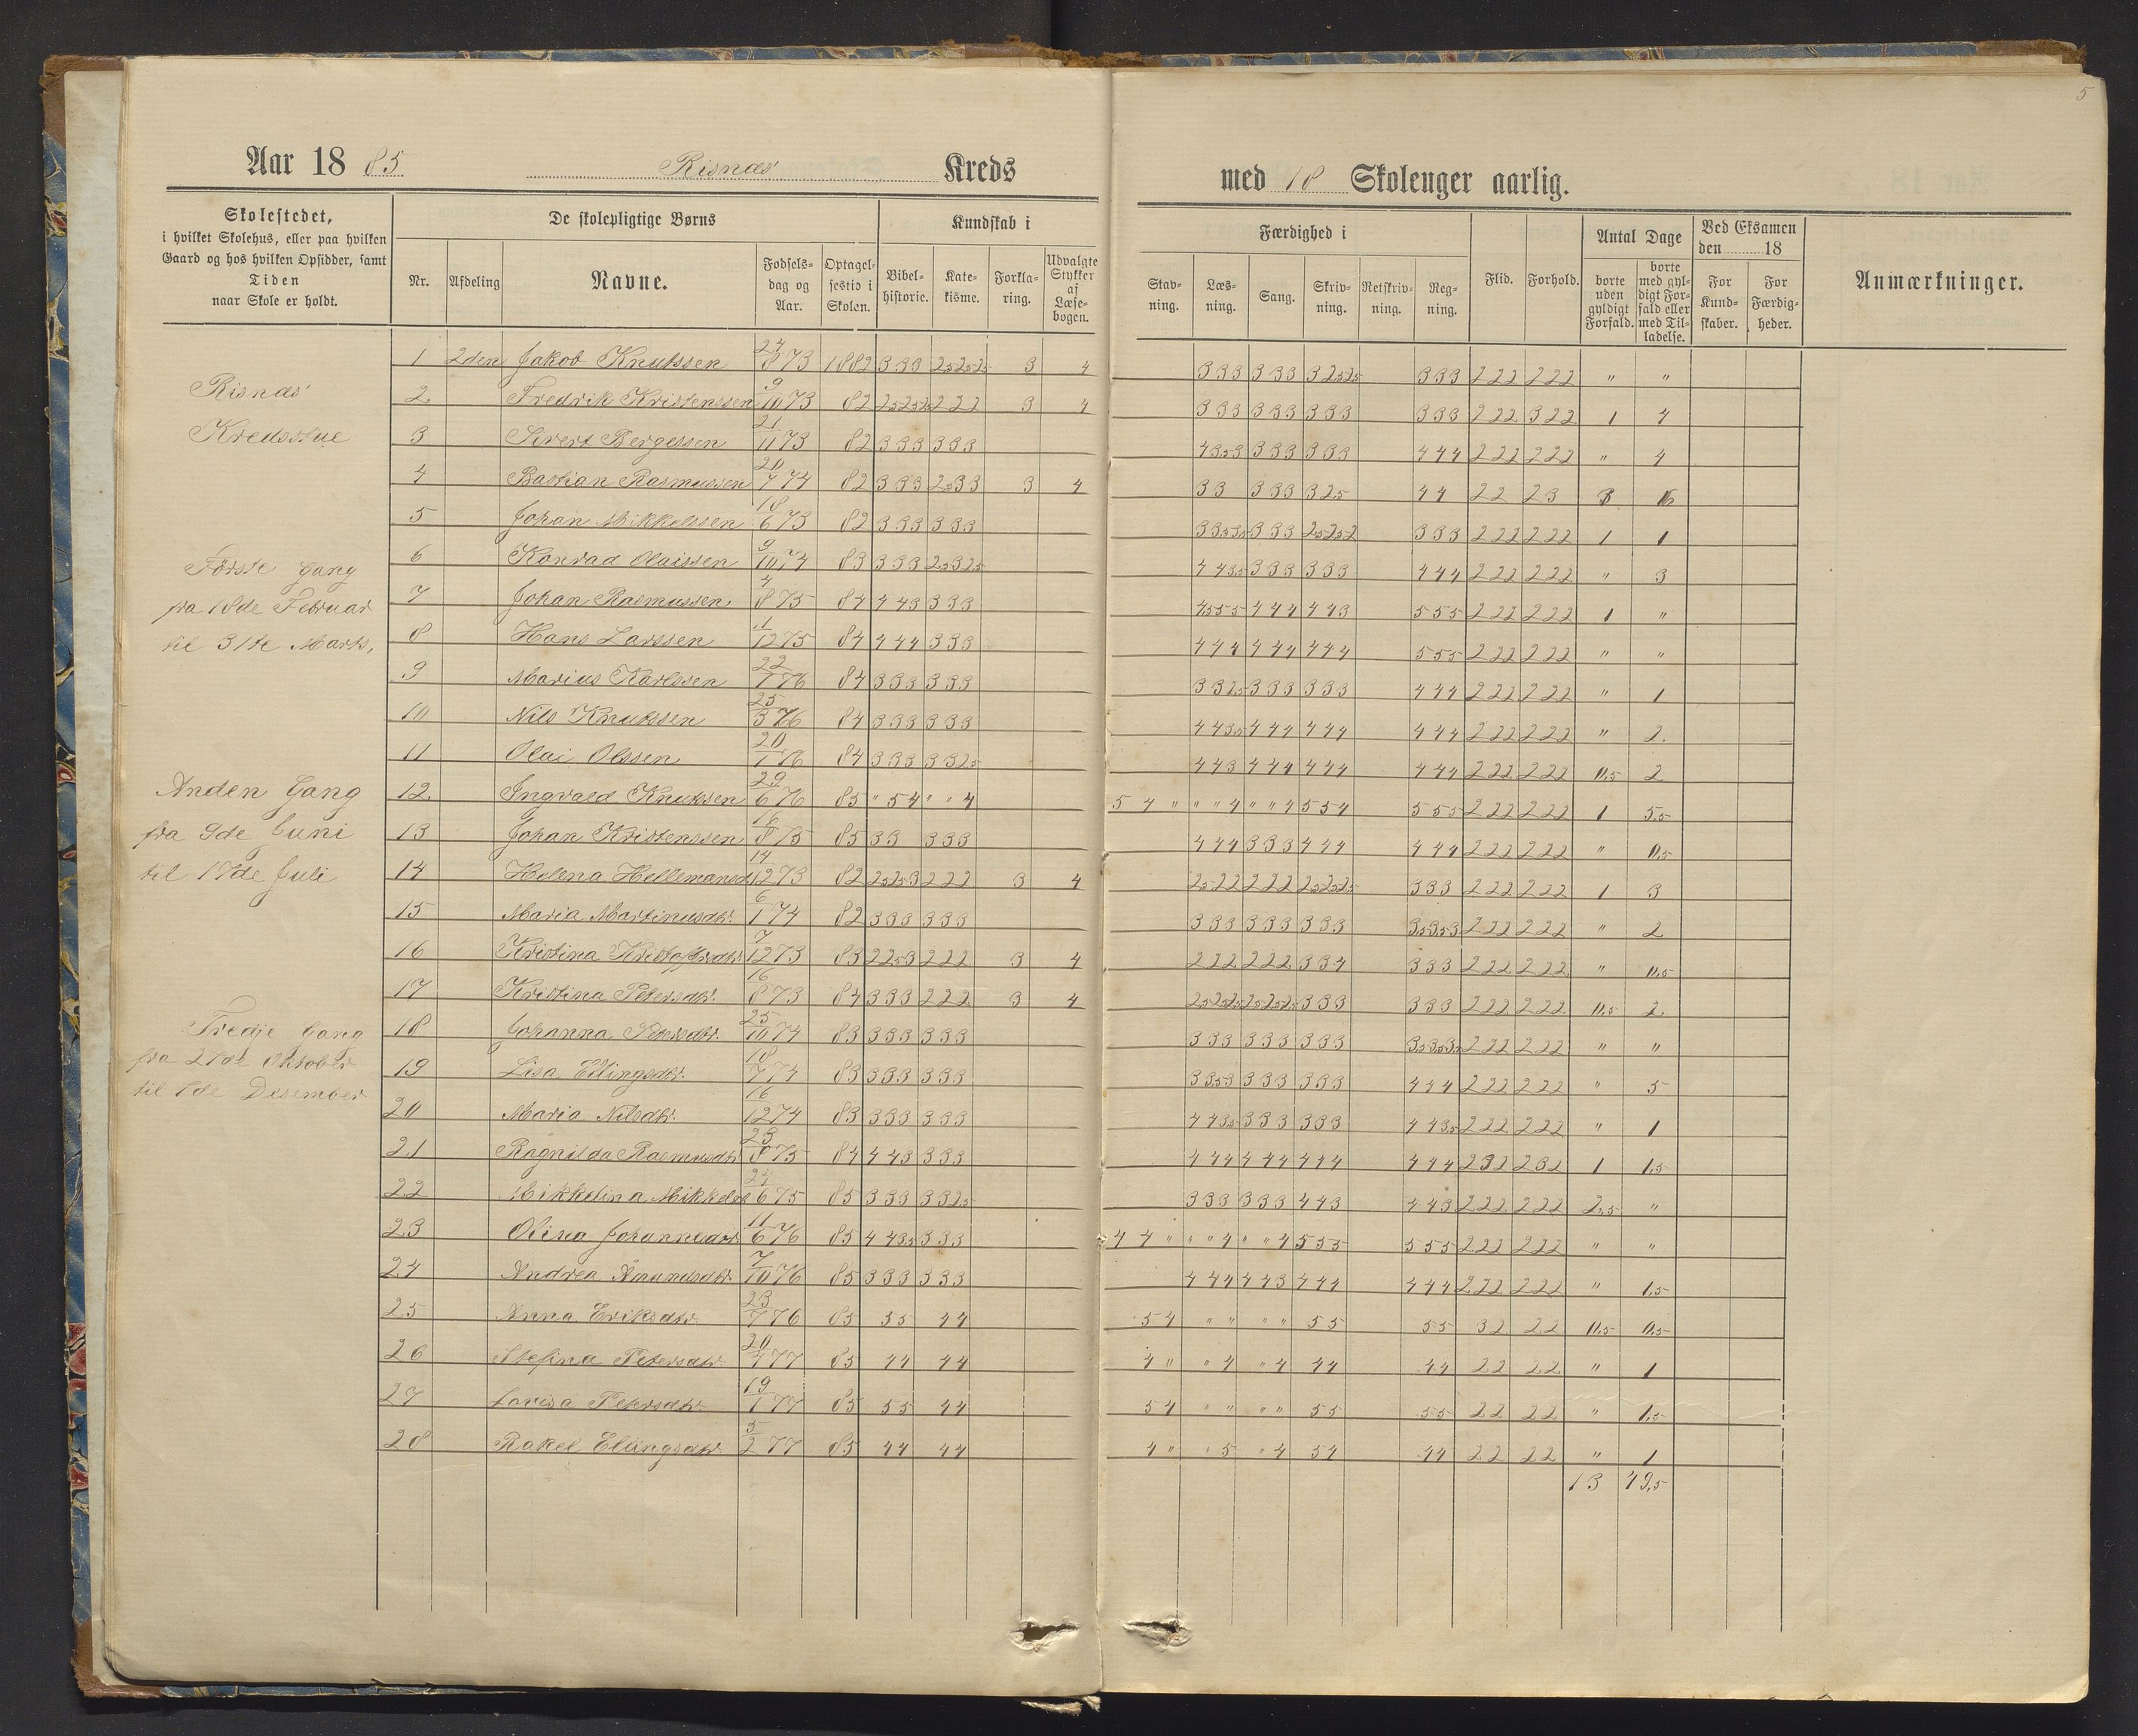 5
Aar 18 85. Risnæs Kreds
med 18 Skoleuger aarlig.
Skolestedet,
i hvilket Skolehus, eller paa hvilken
Gaard og hos hvilken Opsidder, samt
Tiden
naar Skole er holdt.
De skolepligtige Børns
Nr.
Afdeling
Navne.
Fødsels-
dag og
Aar.
Optagel-
sestid i
Skolen.
Kundskab i
Bibel-
historie.
Kate-
kisme.
Forkla-
ring.
Udvalgte
Stykker
af
Læse-
bogen.
Færdighed i
Stav-
ning.
Læs-
ning.
Sang.
Skriv-
ning.
Retskriv-
ning.
Reg-
ning.
Flid.
Forhold.
Antal Dage
borte
uden
gyldigt
Forfald.
borte
med gyl-
digt For-
fald eller
med Til-
ladelse.
Ved Eksamen
den 18
For
Kund-
skaber.
For
Færdig-
heder.
Anmærkninger.
Risnæs
Kredsstue
Første Gang
fra 18de Februar
til 31te Marts,
Anden Gang
fra 9de Juni
til 17de Juli
Tredje Gang
fra 27de Oktober
til 8de Desember
1 2den Jakob Knutssen 24/8 73 1882 333 2,52,52,5 3 4 333 333 32,52,5 333 222 222 " "
2. Fredrik Kristenssen 9/10 73 82 2,52,52,5 222 3 4 333 333 333 333 222 322 1 4
3 Sivert Bergessen 21/11 73 82 333 333 43,53 333 333 444 222 222 " 4
4 Bastian Rasmussen 20/7 74 82 333 2,533 3 4 33 333 32,5 44 22 23 3 16
5 Johan Mikkelssen 18/6 73 82 333 333 33,53,5 333 2,52,52 333 222 222 1 1
6 Konrad Olaissen 9/10 74 83 333 2,532,5 443,5 333 333 444 222 222 " 3
7 Johan Rasmussen 4/8 75 84 443 333 4,555 444 443 555 222 222 1 "
8 Hans Larssen 1/12 75 84 444 333 444 444 444 555 222 222 " "
9 Marius Karlssen 22/1 76 84 333 333 332,5 333 333 444 222 222 " 1
10 Nils Knutssen 25/3 76 84 333 333 443,5 444 444 444 222 222 " 2.
11 Olai Olssen 20/1 76 84 333 332,5 443 444 444 444 222 222 0,5 2
12. Ingvald Knutssen 29/6 76 85 "54 ""4 54" ""4 ""4 554 555 222 222 1 5,5
13 Johan Kristenssen 16/8 75 85 33 333 444 333 444 444 222 222 " 0,5
14 Helena Hellemansd 14/12 73 82 2,52,53 222 3 4 2,522 222 2,52,52,5 333 222 222 1 3
15 Maria Martinusdtr. 6/1 74 82 333 333 333 333 333 3,53,53 222 222 " 2
16 Kristina Kristoffersdtr. 7/12 73 83 22,53 222 3 4 222 222 334 333 222 222 " 0,5
17 Kristina Petersdtr. 16/8 73 84 333 222 3 4 2,52,52,5 2,52,52,5 333 333 222 222 0,5 2.
18 Johanna Petersdtr. 25/10 74 83 333 333 333 333 333 3,53,53,5 222 222 " "
19 Lisa Ellingsdtr. 18/7 74 83 333 333 33,53 333 333 444 222 222 " 5
20 Maria Nilsdtr. 16/12 74 83 333 333 443,5 333 333 443,5 222 222 " 1
21 Ragnilda Rasmusdtr 23/8 75 84 443 333 444 444 444 444 232 232 1 1,5
22 Mikkelina Mikkelsd 24/6 75 85 333 332,5 333 333 443 443 222 222 2,5 "
23 Olina Johannesdtr. 11/6 76 85 443,5 333 44" ""4 ""4 555 555 222 222 " "
24 Andrea Amundsdtr 7/10 76 85 333 333 444 443 444 444 222 222 " 1,5
25 Anna Eriksdtr. 23/7 76 85 55 44 54 "" "" 55 55 32 22 0,5 0,5
26 Stefina Petersdtr 20/4 77 85 44 44 4" "4 "4 44 44 22 22 " 1
27 Lovisa Petersdtr. 19/1 77 85 55 44 54 "" "" 55 55 22 22 " 1,5
28 Rakel Ellingsdtr. 5/2 77 85 44 44 4" "5 "4 54 44 22 22 " 1
13 79,5